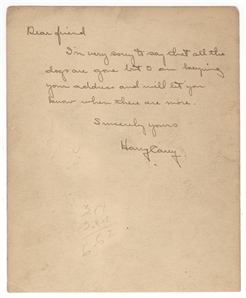 Dear friend
I'm very sorry to say that all the
dogs are gone but I am keeping
your address and will let you
know when there are more.
Sincerely yours
Harry Carey.